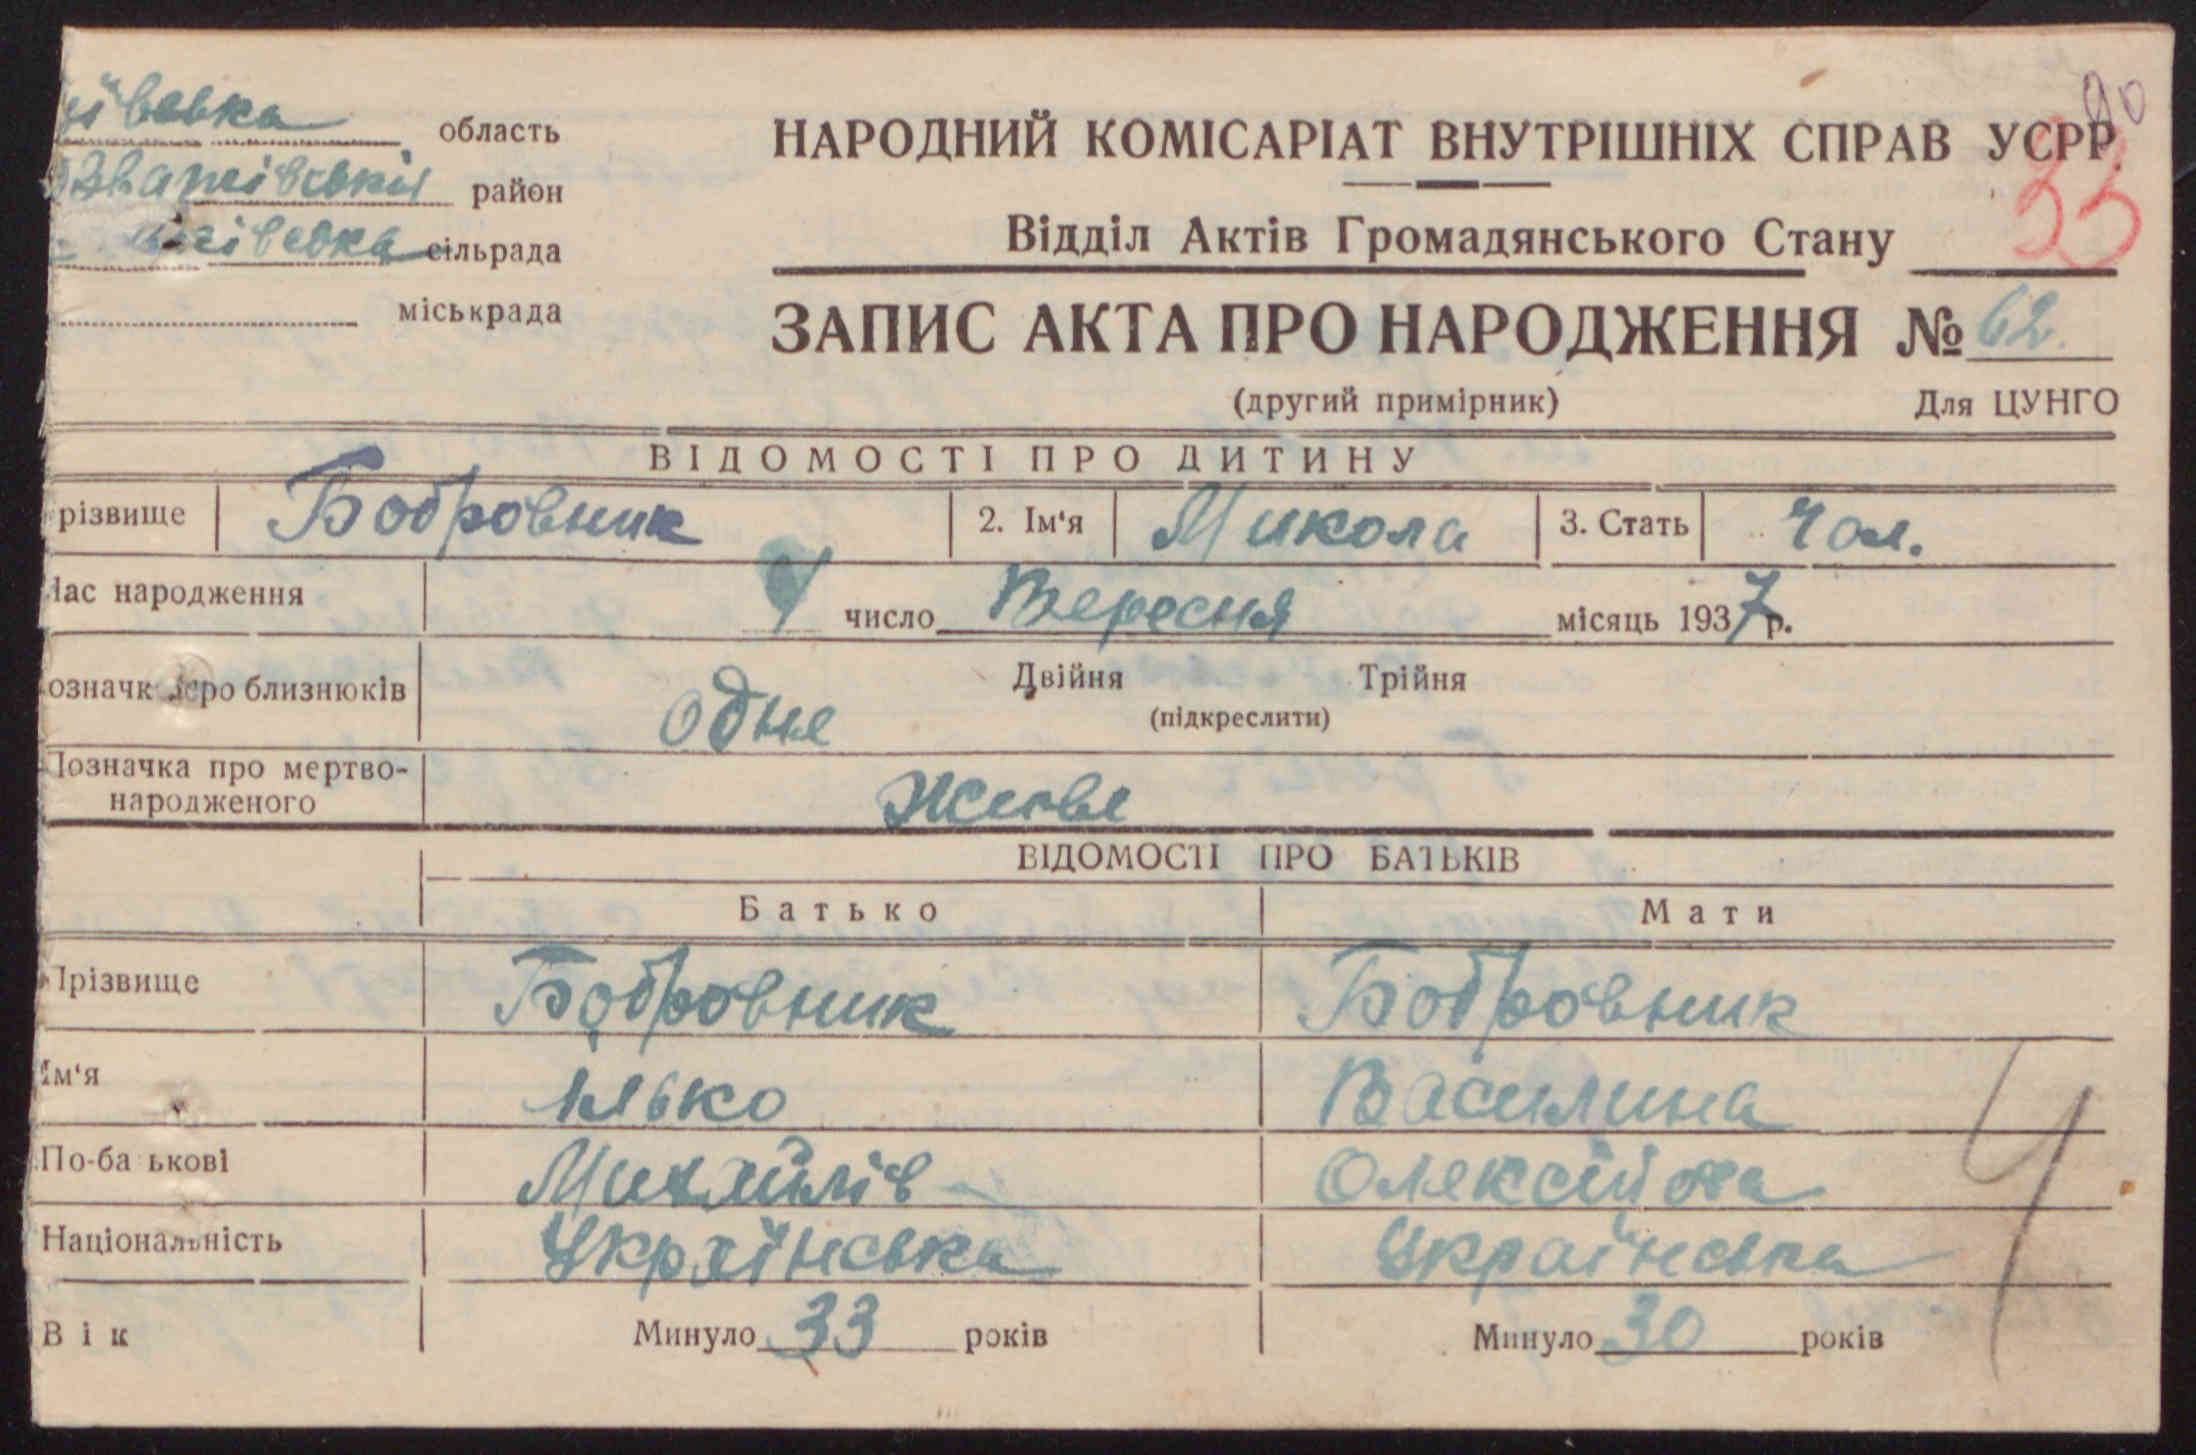 ївська область
район
сільрада
міськрада
90
НАРОДНИЙ КОМІСАРІАТ ВНУТРІШНІХ СПРАВ УСРР.
33
Відділ Актів Громадянського Стану
ЗАПИС АКТА ПРО НАРОДЖЕННЯ № 62.
(другий примірник) Для ЦУНГО
ВІДОМОСТІ ПРО ДИТИНУ
різвище Бобровник 2. Ім'я Микола 3. Стать Чол.
Час народження число Вересня місяць 1937 р.
означк про близнюків одне Двійня Трійня
(підкреслити)
Позначка про мертво-
народженого Живе
ВІДОМОСТІ ПРО БАТЬКІВ
Батько Мати
Прізвище Бобровник Бобровник
Ім'я Ілько Василина
По-ба ькові Михайлів Олексійовна
Національність Українська Українська
Вік Минуло 33 років Минуло 30 років